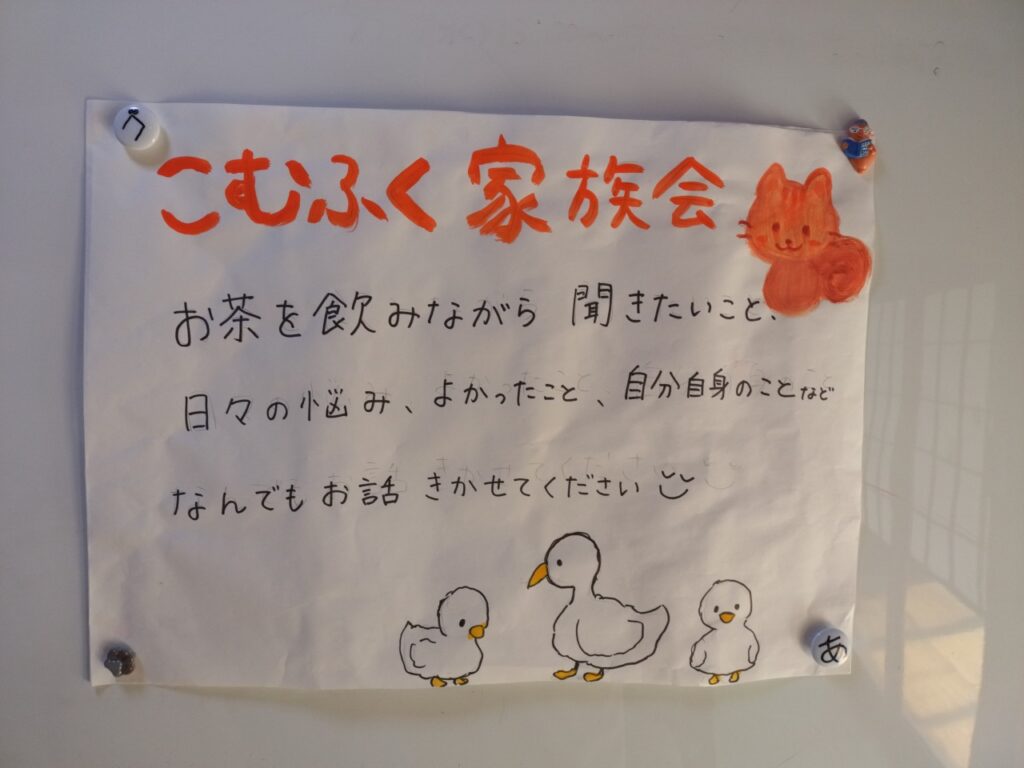 こむふく家族会
お茶を飲みながら 聞きたいこと、
日々の悩み、よかったこと、自分自身のことなど
なんでもお話 きかせてください
あ